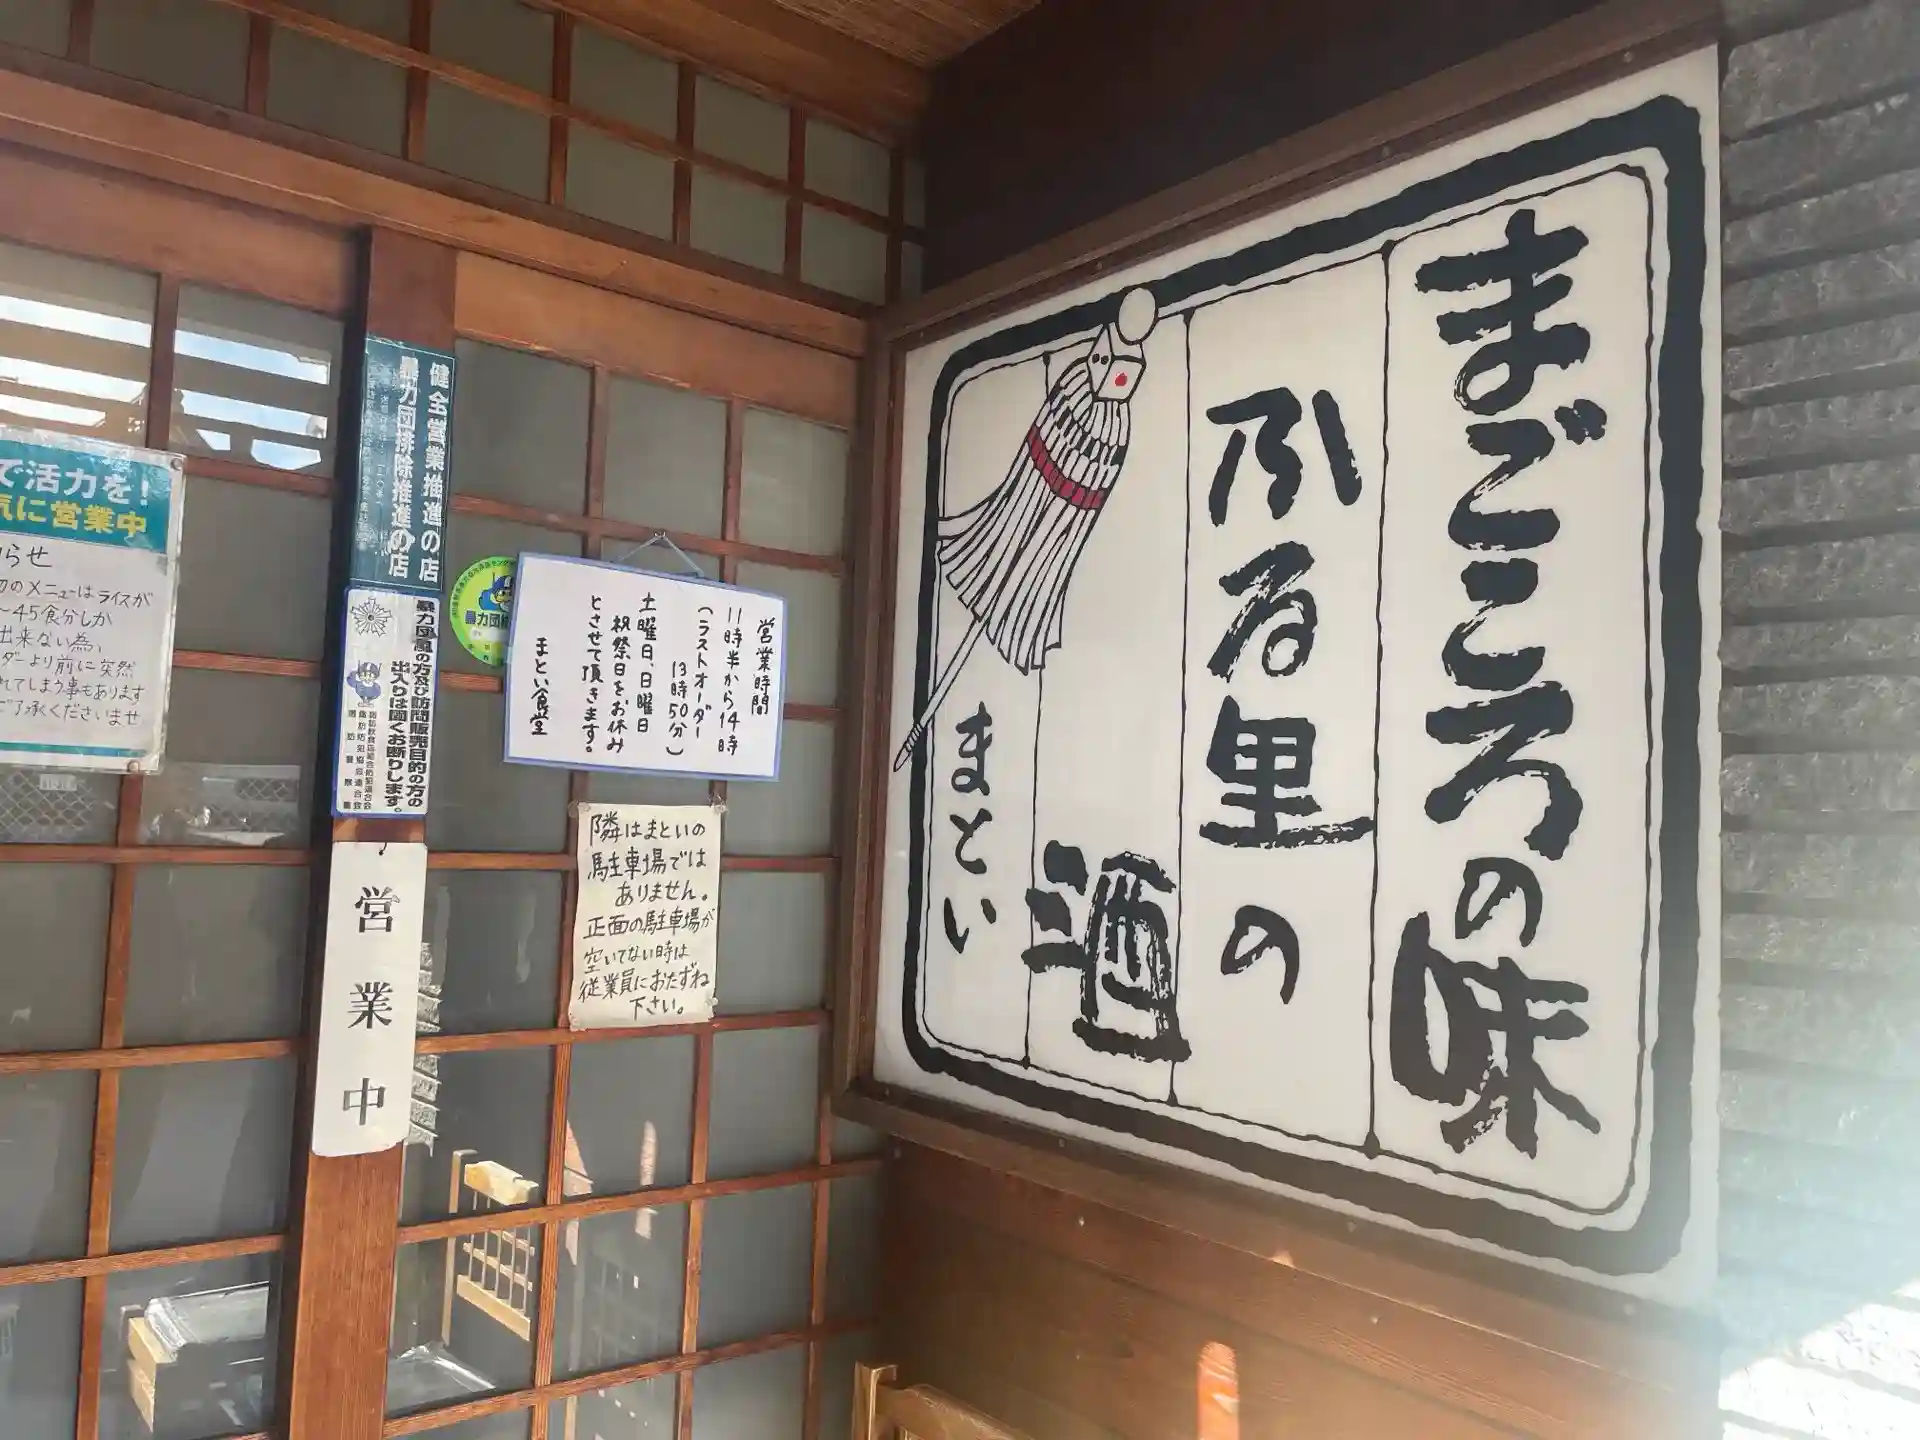 まごころの味
ふる里の
酒
まとい
営業時間
11時半から14時
(ラストオーダー
13時50分)
土曜日、日曜日
祝祭日をお休み
とさせて頂きます。
まとい食堂
隣はまといの
駐車場では
ありません。
正面の駐車場が
空いてない時は
従業員におたずね
下さい。
健全営業推進の店
暴力団排除推進の店
暴力団風の方及び訪問販売目的の方の
出入りは固くお断りします。
営業中
で活力を!
気に営業中
らせ
のメニューはライスが
~45食分しか
出来ない為、
ダーより前に突然
れてしまう事もあります
ご了承くださいませ
暴力団